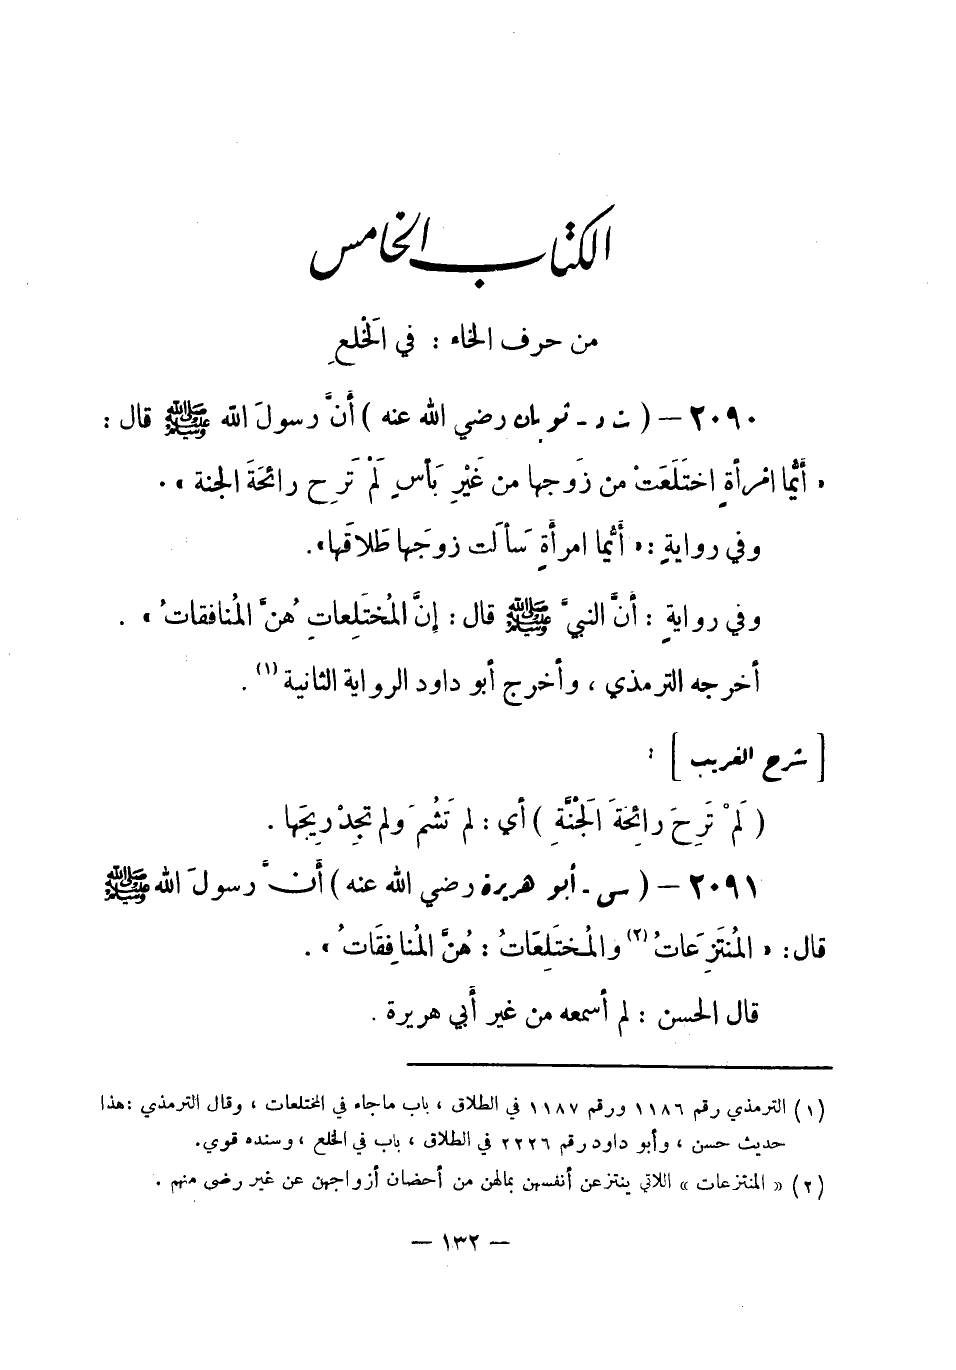 الكتاب الخامس
من حرف الخاء : في الخُلْعِ
٢٠٩٠ – ( ت د - ثوبان رضي الله عنه ) أَنَّ رسولَ الله ﷺ قال :
« أَيُّما امْرأةٍ اختَلَعَتْ من زَوجها من غَيْرِ بَأسٍ لَمْ تَرِح رائحَةَ الجنة » .
وفي روايةٍ : « أَيُّما امرأَةٍ سَألَت زوجَها طَلاقَها ».
وفي روايةٍ : أَنَّ النبيَّ ﷺ قال : إِنَّ المُخْتَلِعاتِ هُنَّ المُنافقاتُ » .
أخرجه الترمذي ، وأخرج أبو داود الرواية الثانية (١) .
[ شرح الغريب ] :
( لَمْ تَرِحَ رائِحَةَ الجَنَّةِ ) أي : لم تَشُمَّ ولم تَجِدْ رِيحَها .
٢٠٩١ – ( س - أبو هريرة رضي الله عنه ) أَنَّ رسولَ الله ﷺ
قال : « المُنْتَزِعاتُ (٢) والمُختَلِعَاتُ : هُنَّ المُنافِقَاتُ » .
قال الحسن : لم أسمعه من غير أَبي هريرة .
(١) الترمذي رقم ١١٨٦ ورقم ١١٨٧ في الطلاق ، باب ماجاء في المختلعات ، وقال الترمذي : هذا
حديث حسن ، وأبو داود رقم ٢٢٢٦ في الطلاق ، باب في الخلع ، وسنده قوي.
(٢) « المنتزعات » اللاتي ينتزعن أنفسهن بمالهن من أحضان أزواجهن عن غير رضى منهم .
– ١٣٢ –